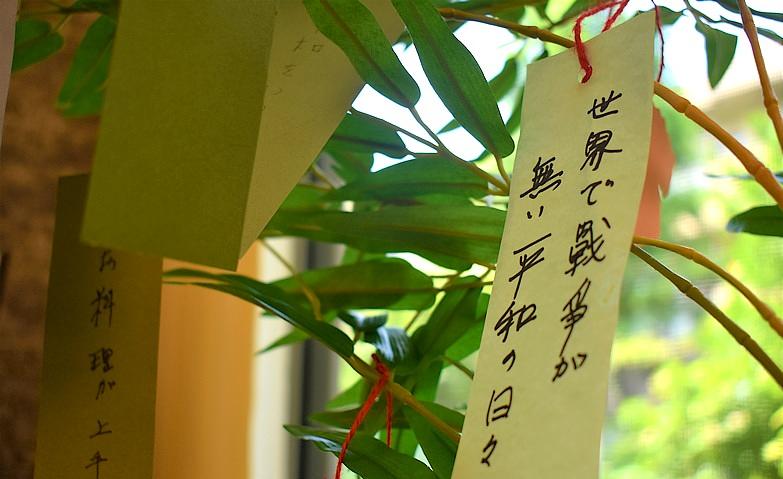 世界で戦争が
無い平和の日々
お料理が上手